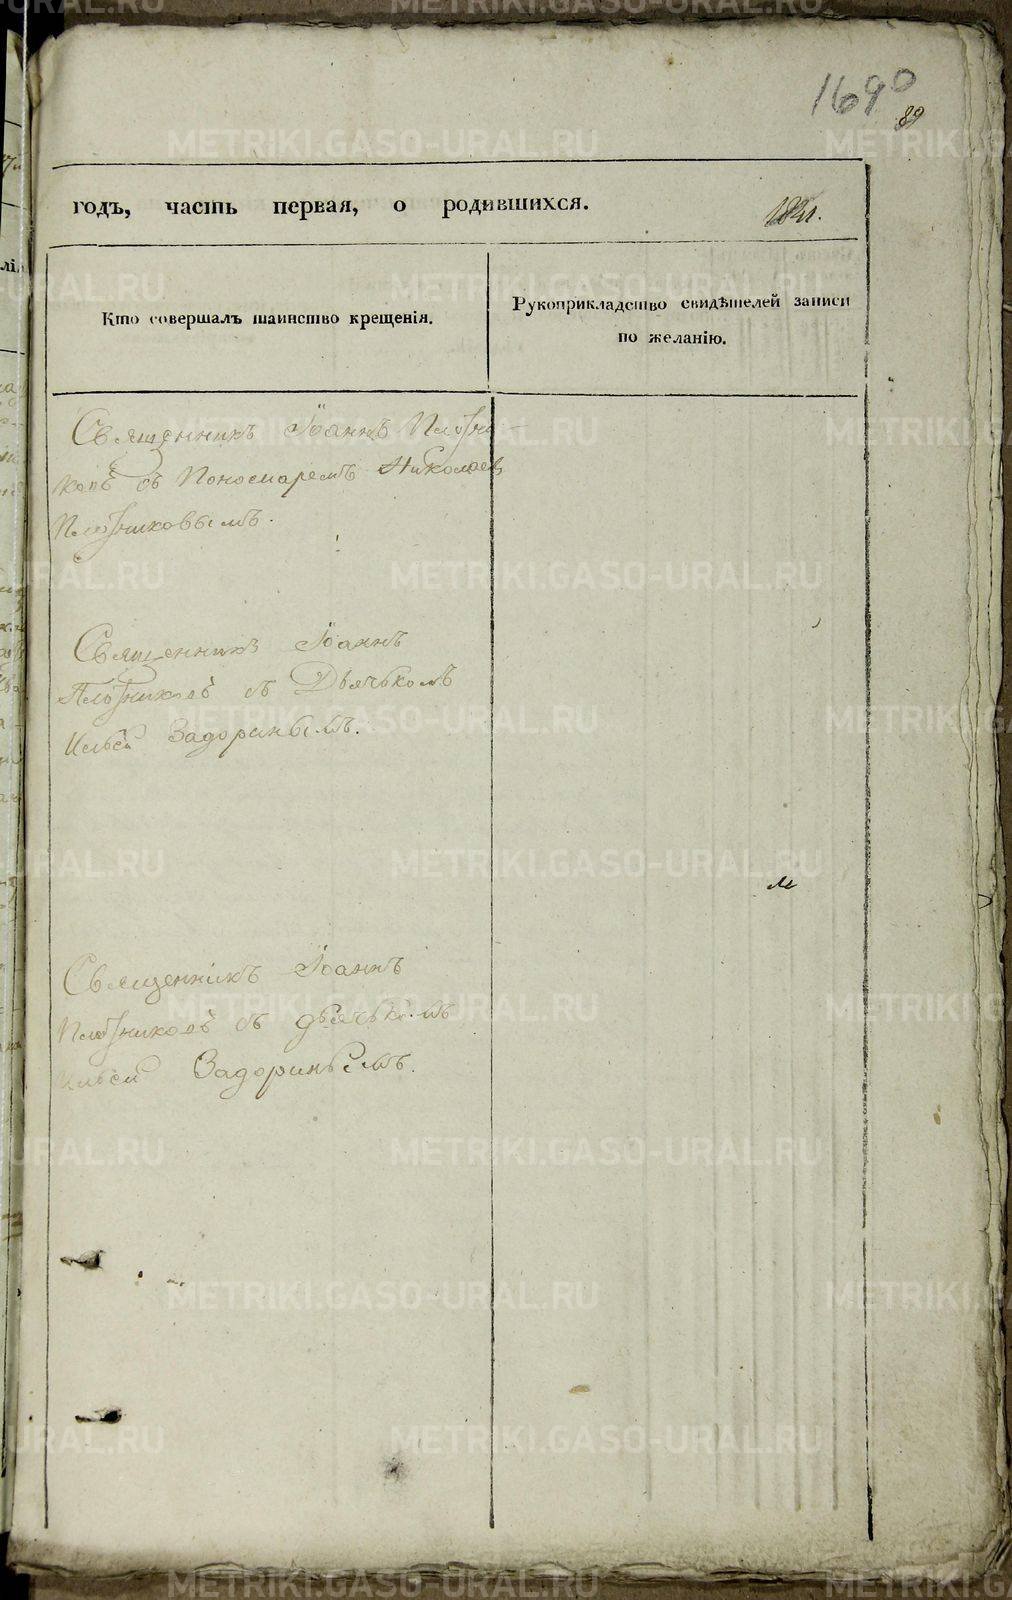 1690
89
годъ, часть первая, о родившихся.
Кто совершалъ таинство крещенія.
Рукоприкладство свидѣтелей записи
по желанію.
Священникъ Іоаннъ Плотни-
ковъ съ Пономаремъ Николаев
Плотниковымъ.
Священникъ Іоаннъ
Плотниковъ съ Дьячькомъ
Ильей Задоринымъ.
Священникъ Іоаннъ
Плотниковъ съ дьячькомъ
Ильей Задоринымъ.
METRIKI.GASO-URAL.RU